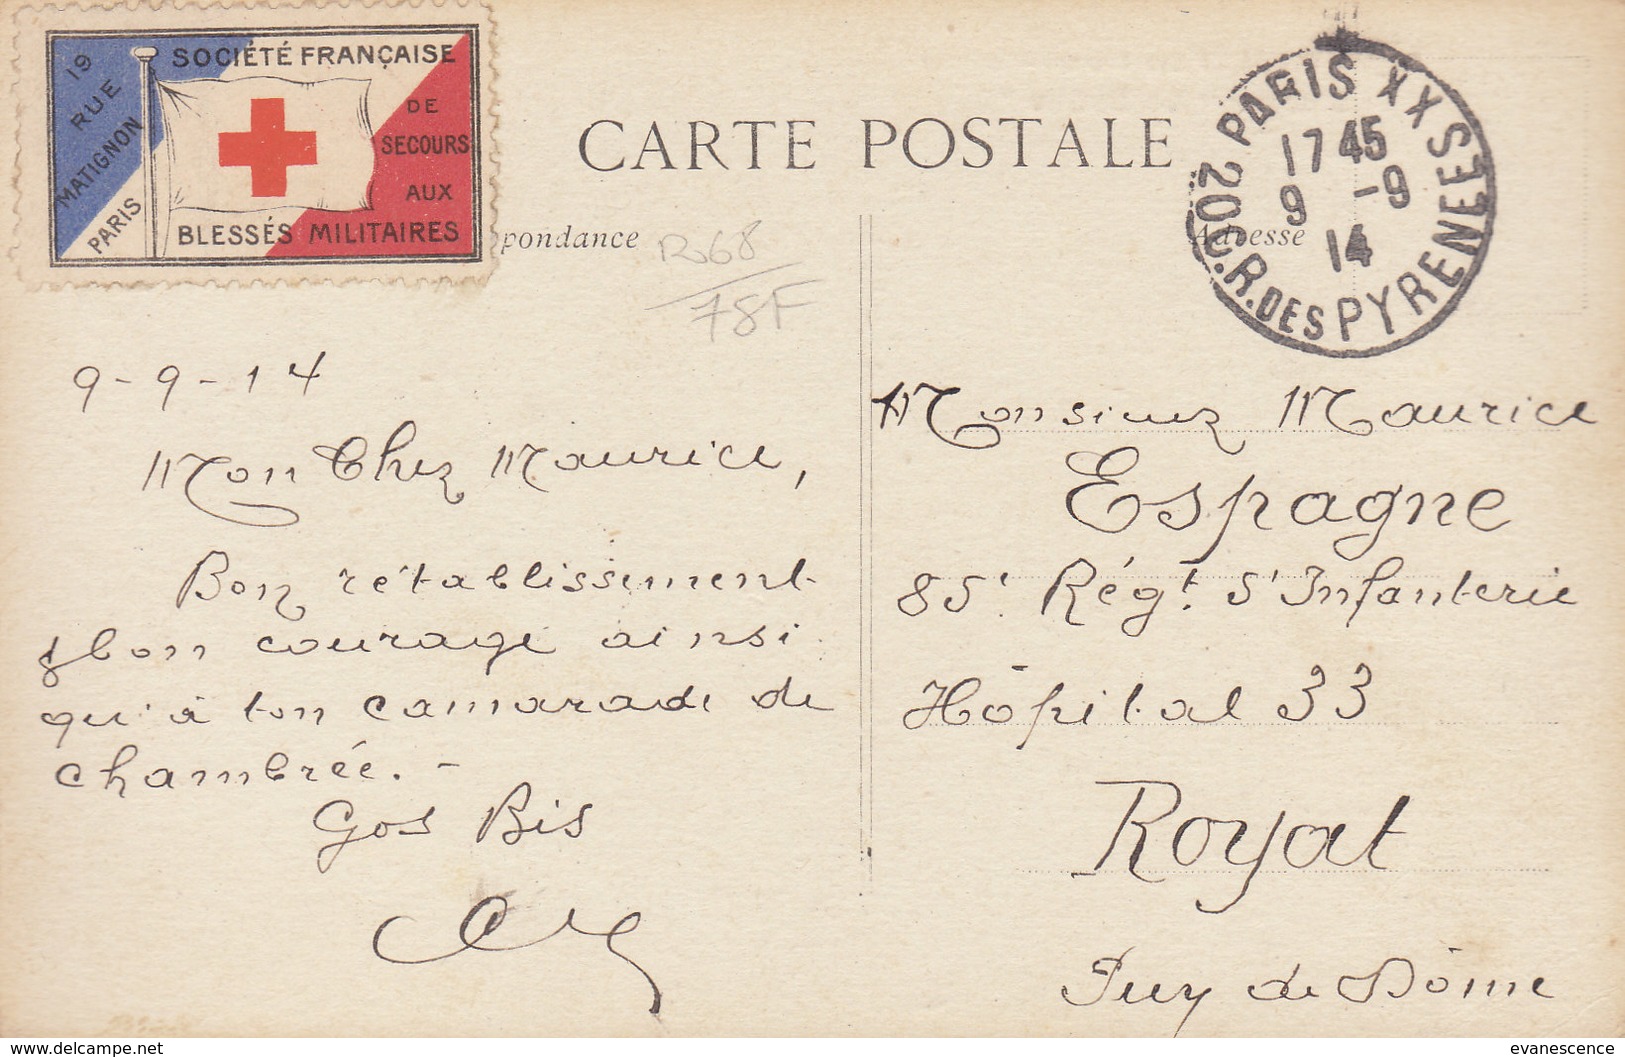 19
RUE
MATIGNON
PARIS
SOCIÉTÉ FRANÇAISE
DE
SECOURS
AUX
BLESSÉS MILITAIRES
CARTE POSTALE
pondance
Adresse
PARIS XX
20 C. R. DES PYRENEES
17 45
9 -9
14
R68
78F
9-9-14
Mon Cher Maurice,
Bon rétablissement
& bon courage ainsi
qu'à ton camarade de
chambrée. -
Gos Bis
Monsieur Maurice
Espagne
85e Régt d'Infanterie
Hôpital 33
Royat
Puy de Dôme
evanescence